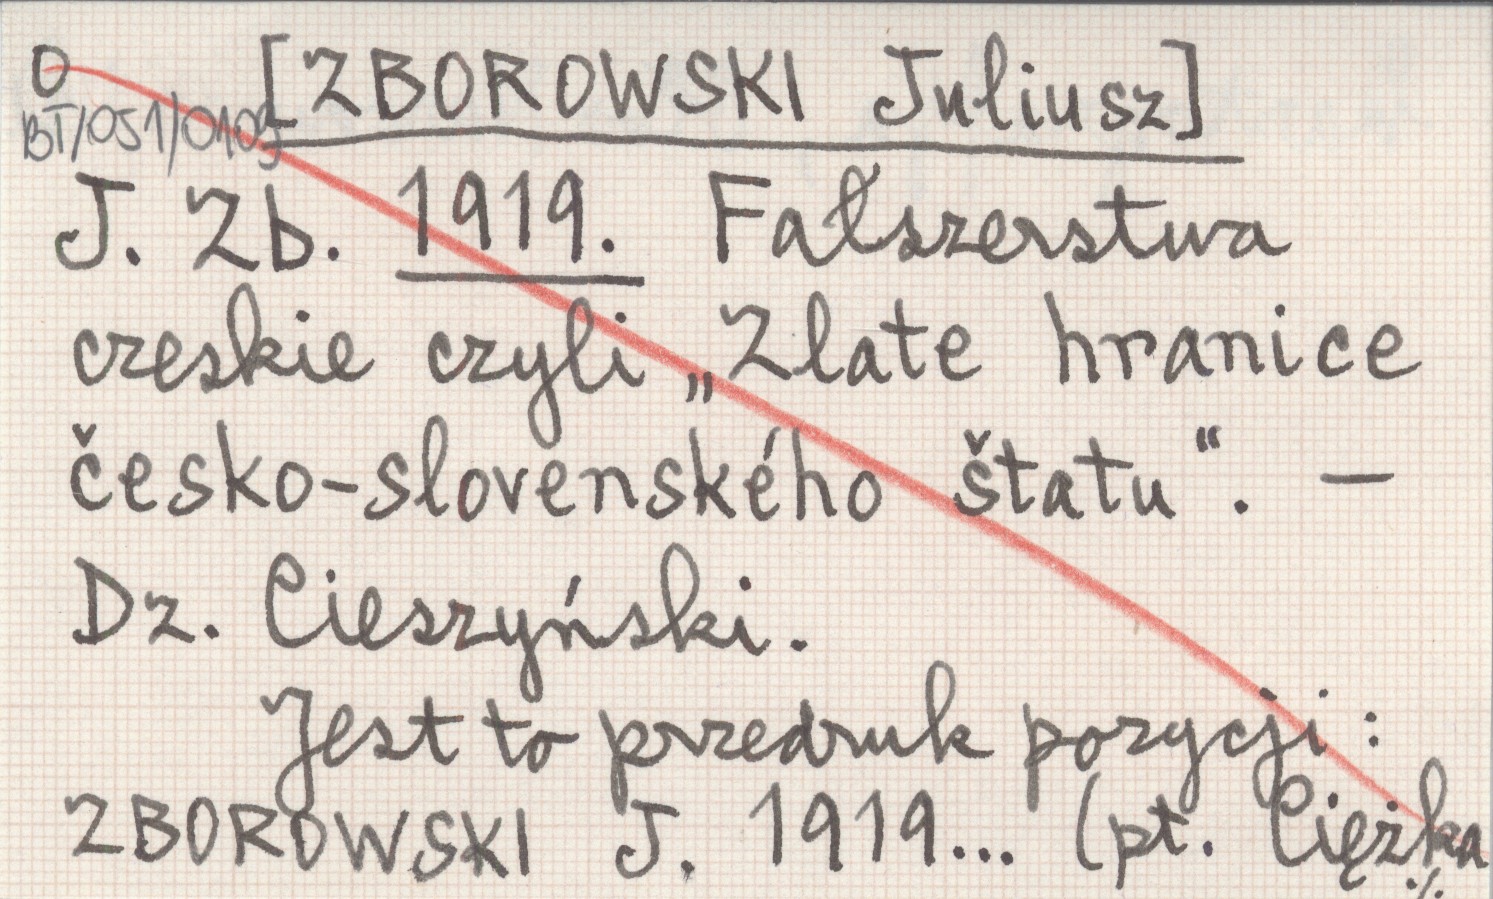 O [ZBOROWSKI Juliusz]
BT/051/0109
J. Zb. 1919. Fałszerstwa
czeskie czyli „Zlate hranice
česko-slovenského štatu“. —
Dz. Cieszyński.
Jest to przedruk pozycji:
ZBOROWSKI J. 1919... (pt. Ciężka
./.